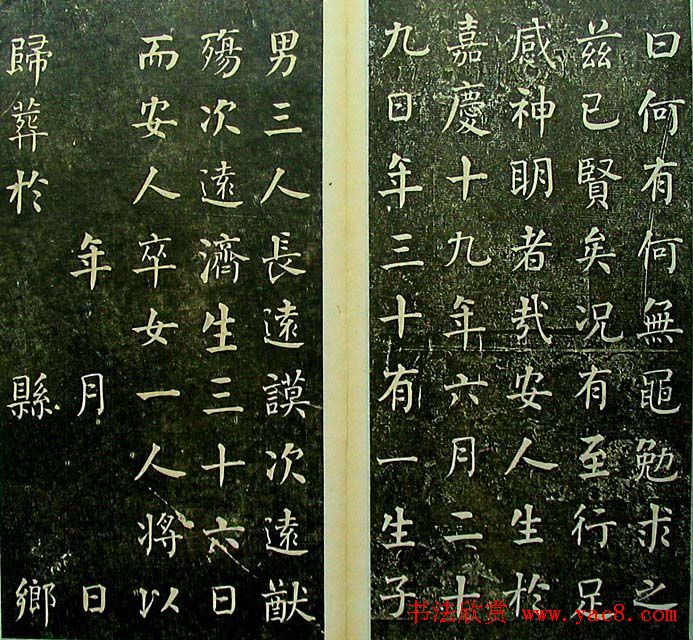 曰何有何無黽勉求之
茲已賢矣况有至行足
感神明者哉安人生於
嘉慶十九年六月二十
九日年三十有一生子
男三人長遠謨次遠猷
殤次遠濟生三十六日
而安人卒女一人將以
年 月 日
歸葬於 縣 鄉
书法欣赏 www.yac8.com